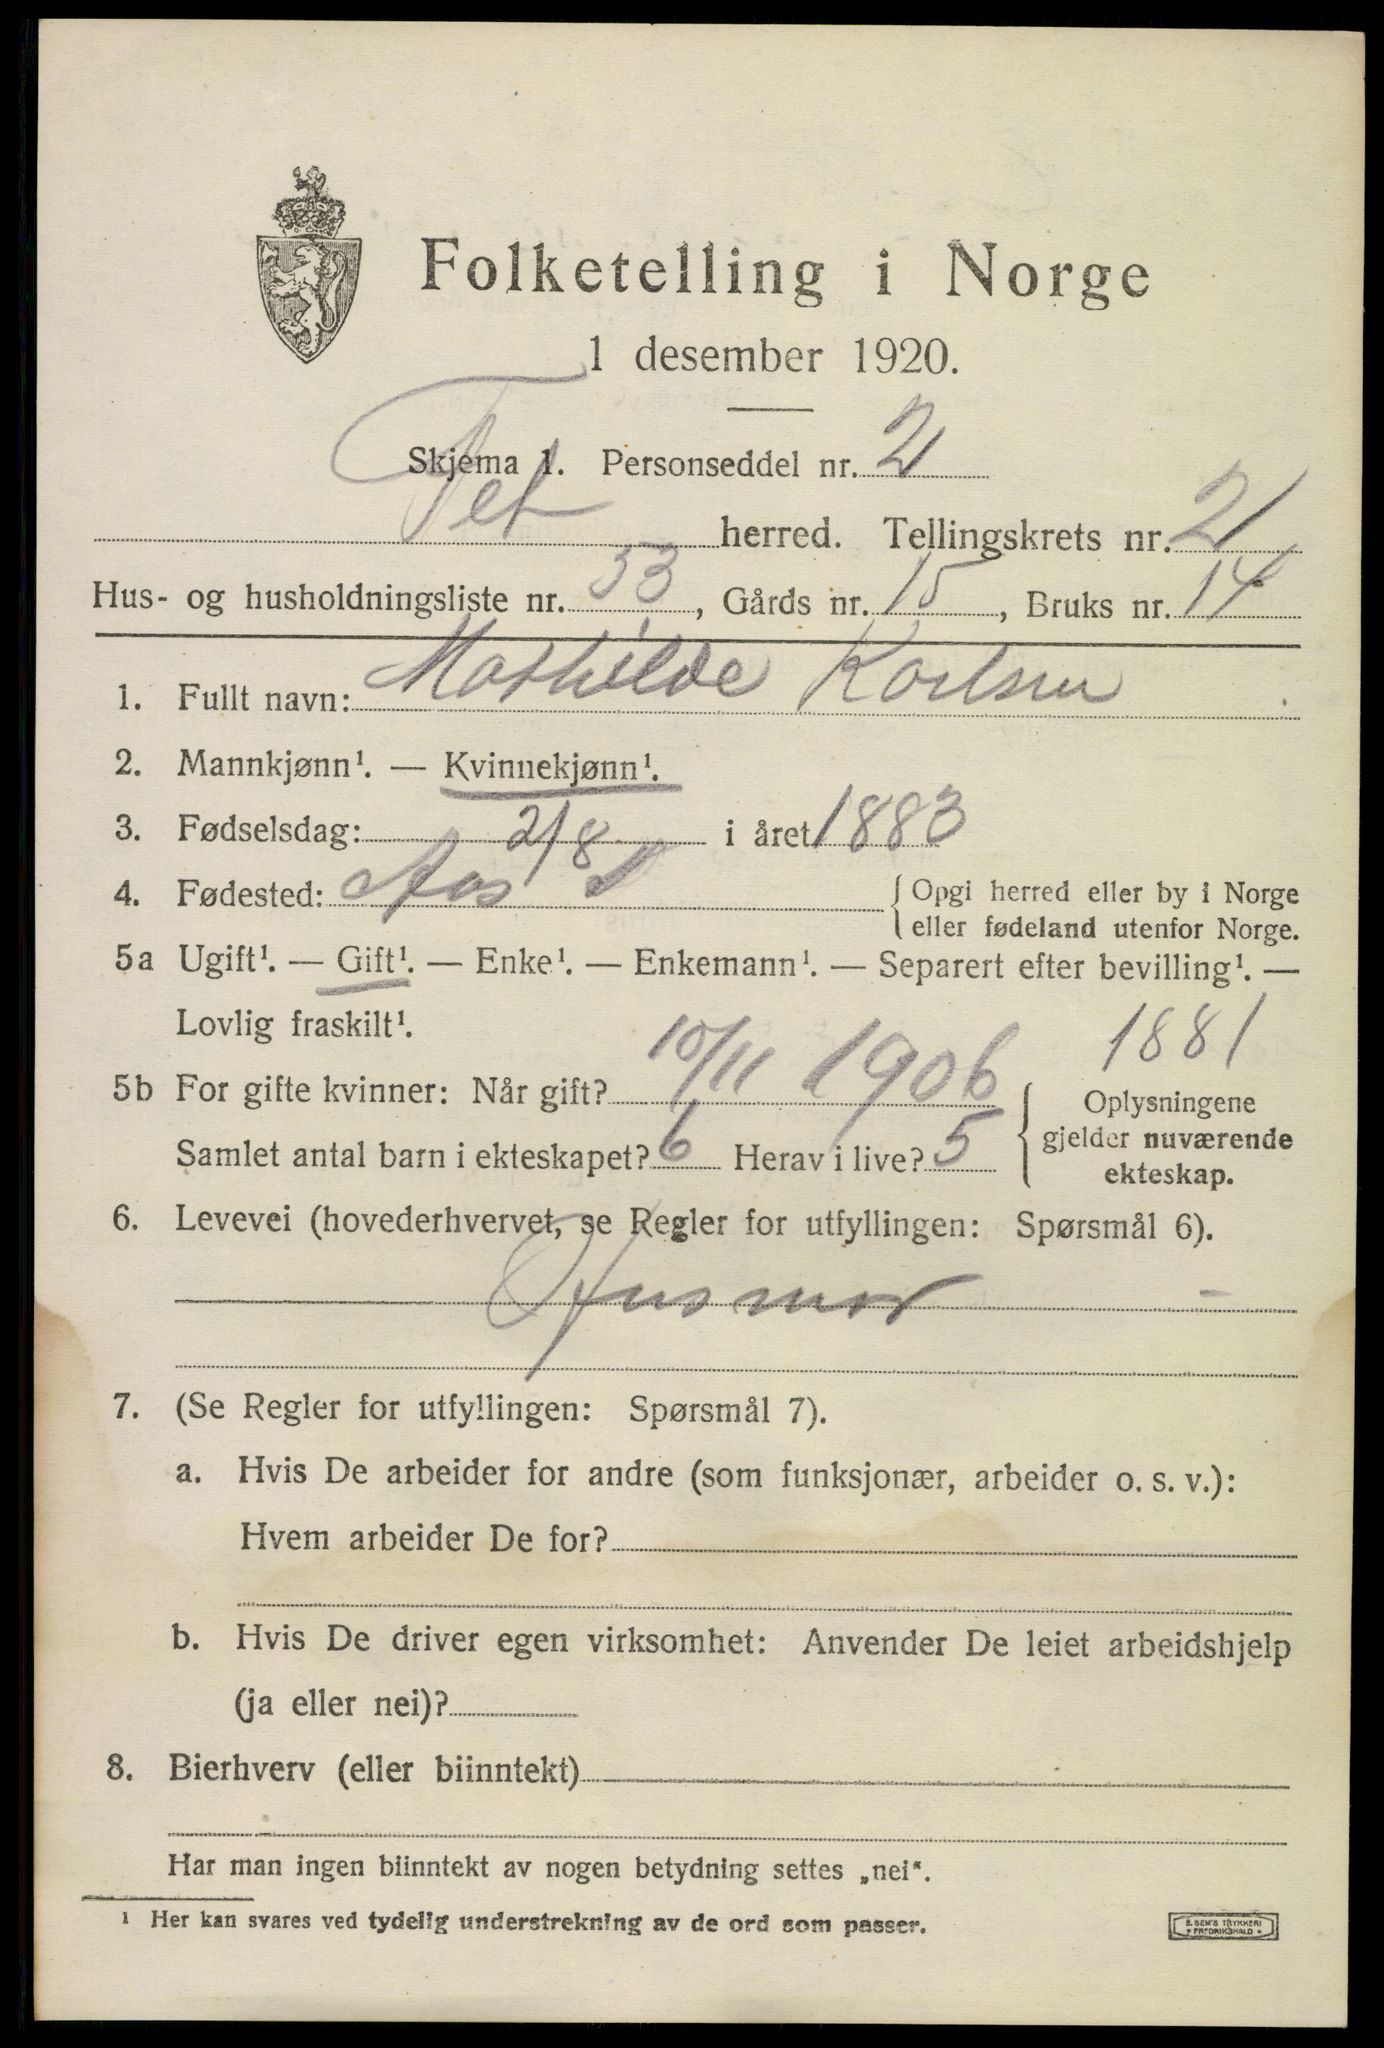 Folketelling i Norge
1 desember 1920.
Skjema 1. Personseddel nr. 2
Fet herred. Tellingskrets nr. 2
Hus- og husholdningsliste nr. 53, Gårds nr. 15, Bruks nr. 14
1. Fullt navn: Mathilde Karlsen
2. Mannkjønn¹. — Kvinnekjønn¹.
3. Fødselsdag: 2/8 i året 1883
4. Fødested: Aas { Opgi herred eller by i Norge
eller fødeland utenfor Norge.
5a Ugift¹. — Gift¹. — Enke¹. — Enkemann¹. — Separert efter bevilling¹. —
Lovlig fraskilt¹.
1881
5b For gifte kvinner: Når gift? 10/11 1906
Samlet antal barn i ekteskapet? 6 Herav i live? 5
{ Oplysningene
gjelder nuværende
ekteskap.
6. Levevei (hovederhvervet, se Regler for utfyllingen: Spørsmål 6).
Husmor -
7. (Se Regler for utfyllingen: Spørsmål 7).
a. Hvis De arbeider for andre (som funksjonær, arbeider o. s. v.):
Hvem arbeider De for?
b. Hvis De driver egen virksomhet: Anvender De leiet arbeidshjelp
(ja eller nei)?
8. Bierhverv (eller biinntekt)
Har man ingen biinntekt av nogen betydning settes „nei“.
¹ Her kan svares ved tydelig understrekning av de ord som passer.
E. SEM'S TRYKKERI
* FREDRIKSHALD *